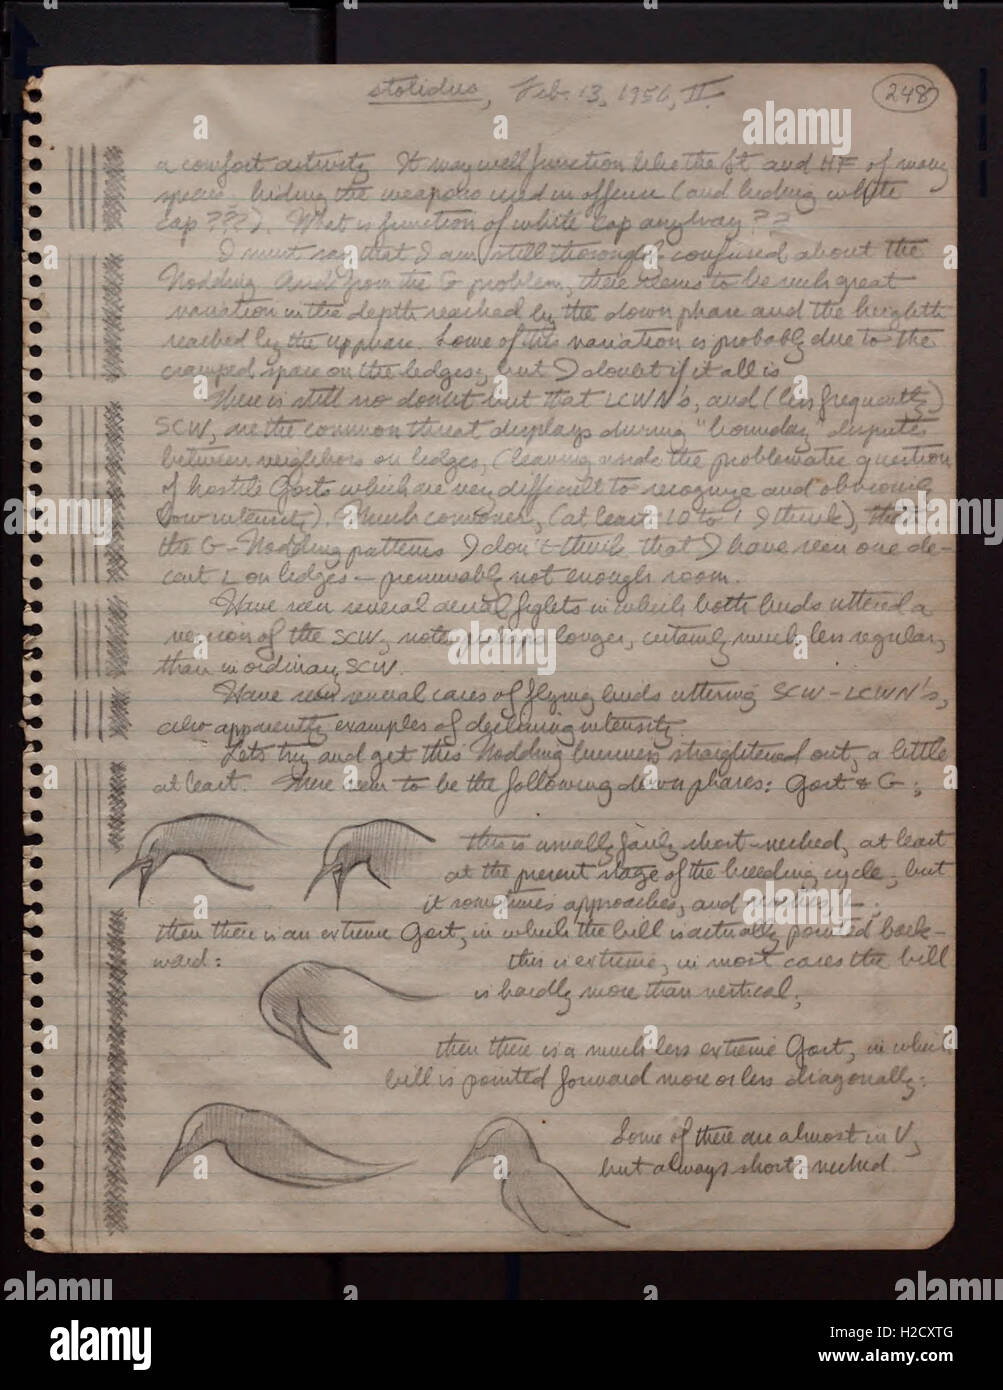 stolidus, Feb. 13, 1956, II.
248
a comfort activity. It may well function like the St and HF of many
species - hiding the weapons used in offence (and hiding white
cap ???). What is function of white cap anyway??
I must say that I am still thoroughly confused about the
Nodding. Aside from the G problem, there seems to be such great
variation in the depth reached by the down phase and the heighth
reached by the up phase. Some of this variation is probably due to the
cramped space on the ledges, but I doubt if it all is.
There is still no doubt but that LCWN's, and (less frequently)
SCW, are the common threat displays during "boundary" disputes
between neighbors on ledges, (leaving aside the problematic question
of hostile Gorts which are very difficult to recognize and obviously
low intensity). Much commoner, (at least 10 to 1 I think), than
the G-Nodding patterns. I don't think that I have seen one de-
cent L on ledges - presumably not enough room.
Have seen several aerial fights in which both birds uttered a
version of the SCW, notes perhaps longer, certainly much less regular,
than in ordinary SCW.
Have seen several cases of flying birds uttering SCW-LCWN's,
also apparently examples of declining intensity.
Lets try and get this Nodding business straightened out, a little
at least. There seem to be the following down phases: Gort & G:
this is usually fairly short-necked, at least
at the present stage of the breeding cycle, but
it sometimes approaches, and L.
then there is an extreme Gort, in which the bill is actually pointed back-
ward:
this is extreme, in most cases the bill
is hardly more than vertical,
then there is a much less extreme Gort, in which
bill is pointed forward more or less diagonally:
Some of these are almost in V,
but always short-necked
alamy
alamy
H2CXTG
www.alamy.com